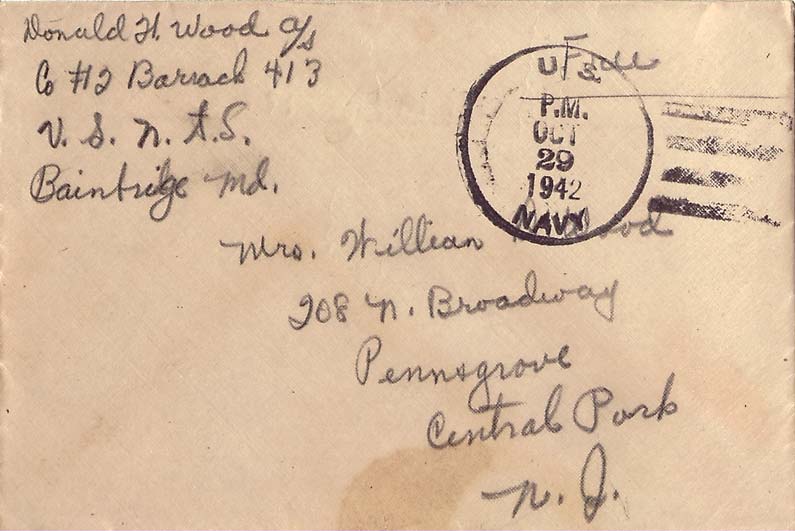 Donald H. Wood a/s
Co #12 Barrack 413
U. S. N. T. S.
Bainbridge Md.
Free
U.S.
P.M.
OCT
29
1942
NAVY
Mrs. William Wood
208 N. Broadway
Pennsgrove
Central Park
N. J.